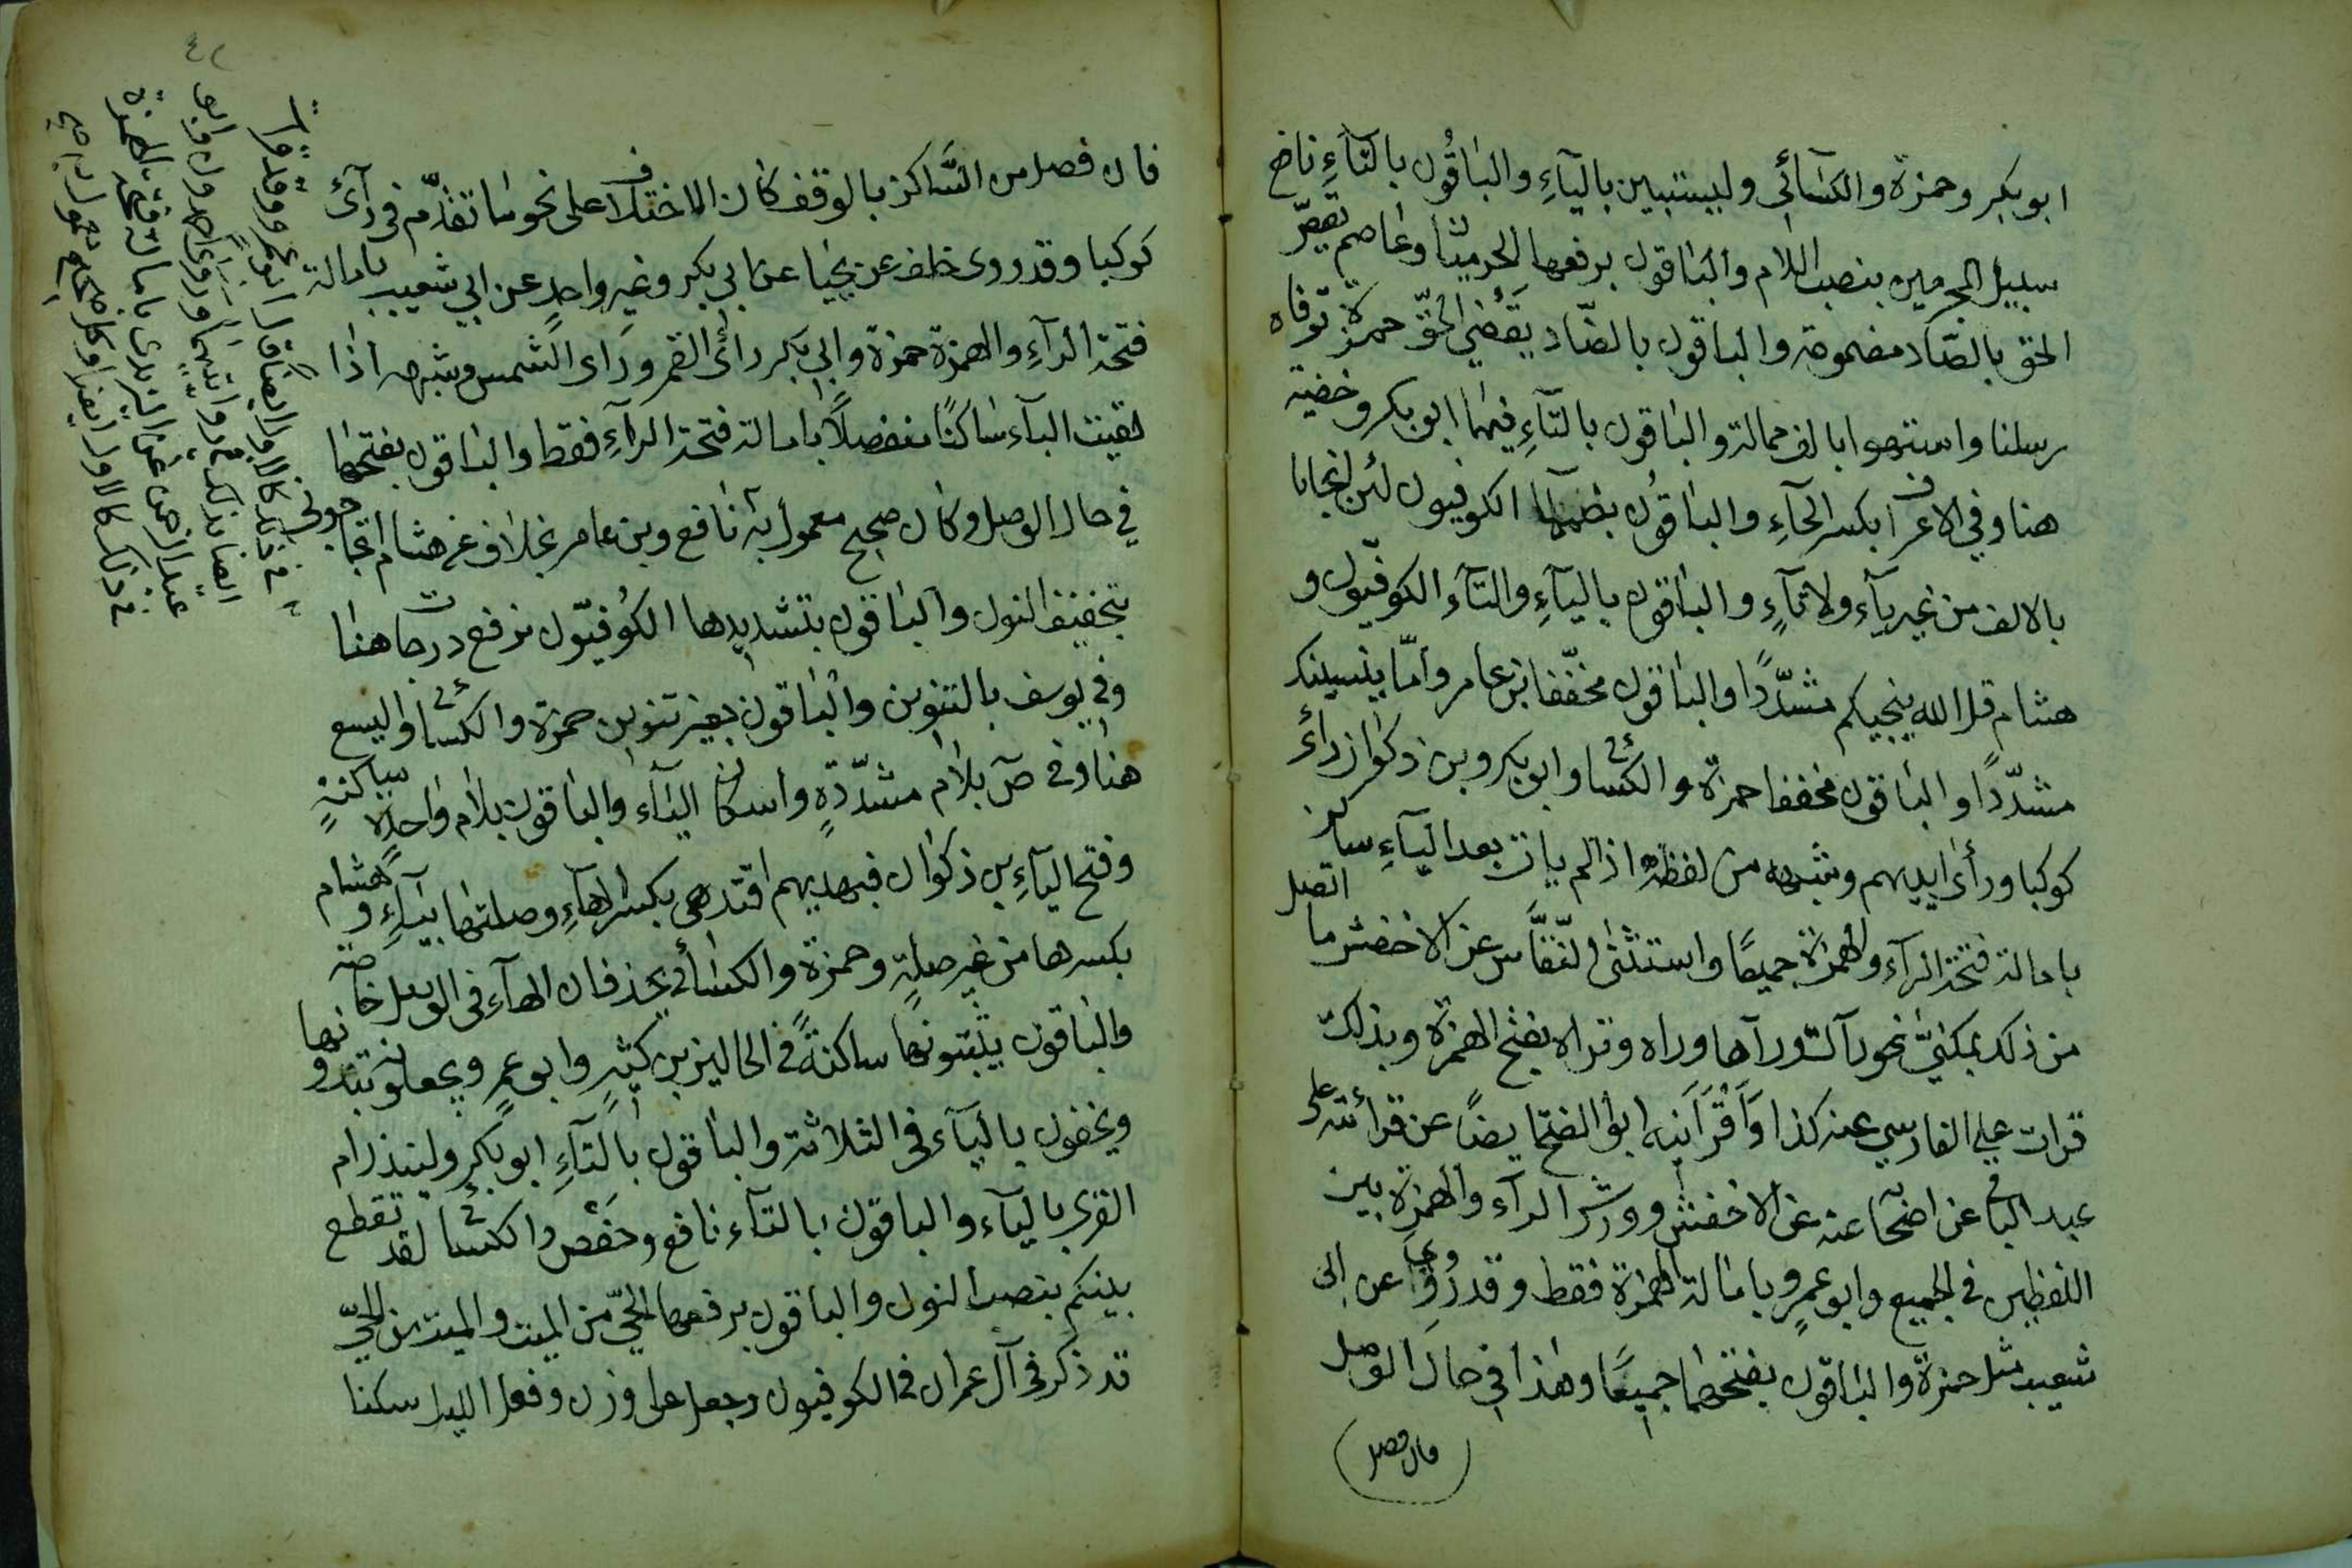 ابوبكر وحمزة والكسآئى وليستبين باليآءِ والباقُون بالتآءِ نافع
سبيل المجرمين بنصب اللام والباقون برفعها الحرميان وعاصم يقصّ
الحق بالصّاد مضمومة والباقون بالضّاد يَقْضي الحقّ حمزة توفاه
رسلنا واستهواه بالف ممالة والباقون بالتآءِ فيهما ابو بكر وخفية
هنا وفي الاعراف بكسر الخآءِ والباقُون بضمها الكوفيون لئن انجانا
بالالف من غير يآء ولا تآءٍ والباقون باليآءِ والتآءِ الكوفيّون و
هشام قل الله ينجيكم مشدّدًا والباقون مخفّفا بن عامر وامّا ينسينك
مشدّدًا والباقون مخففا حمزة والكسائى وابو بكر وبن ذكوان رأى
كوكبا ورأى ايديهم وشبهه من لفظه اذا لم يات بعد اليآءِ ساكن
بامالة فتحة الرآءِ والهمزة جميعًا واستثنى النّقّاش عن الاخفش ما اتصل
من ذلك بمكنيّ نحو رآك ورآها وراه وتراه بفتح الهمزة وبذلك
قرات على الفارسي عنه كذا وَاَقْرَاَنيه ابو الفتح ايضًا عن قرائته على
عبد الباقى عن اصحابه عنه عن الاخفش وورش الرآء والهمزة بين
اللفظين في الجميع وابو عمرٍو بامالة الهمزة فقط وقد رُوِىَ عن ابى
شعيب مثل حمزة والباقون بفتحهما جميعًا وهذا في حال الوصل
فان فصل
فان فصل من الساكن بالوقف كان الاختلاف على نحو ما تقدّم فى رآى
كوكبا وقد روى خلف عن يحيا عن ابي بكر وغير واحدٍ عن ابي شعيب بامالة
فتحة الرآءِ والهمزة حمزة وابي بكر رأى القمر ورَاى الشمس وشبهه اذا
لقيت اليآء ساكنًا منفصلاً بامالة فتحة الرآءِ فقط والباقون بفتحهما
في حال الوصل وكان صحيح معمول به نافع وبن عامر بخلاف عن هشام اتحاجونى
بتخفيف النون والباقون بتشديدها الكُوفيّون نرفع درجات هنا
وفي يوسف بالتنوين والباقون بغير تنوين حمزة والكسائى واليسع
هنا وفي صۤ بلام مشدّدةٍ واسكان اليآء والباقون بلام واحدة ساكنةٍ
وفتح اليآءِ بن ذكوان فبهديهم اقتدهى بكسر الهآءِ وصلتها بيآءٍ وهشام
بكسرها من غير صلةٍ وحمزة والكسائي يحذفان الهآء فى الوصل خاصة
والباقون يثبتونها ساكنةً في الحالين بن كثيرٍ وابو عمرٍو يجعلونه يبدونها
ويخفون باليآء فى الثلاثة والباقون بالتآءِ ابو بكرٍ ولينذر ام
القرى باليآء والباقون بالتآء نافع وحَفْص والكسائى لقد تقطع
بينكم بنصب النون والباقون برفعها الحيّ من الميت والميت من الحيّ
قد ذكر فى آل عمران في الكوفيون وجعل على وزن وفعل الليل سكنا